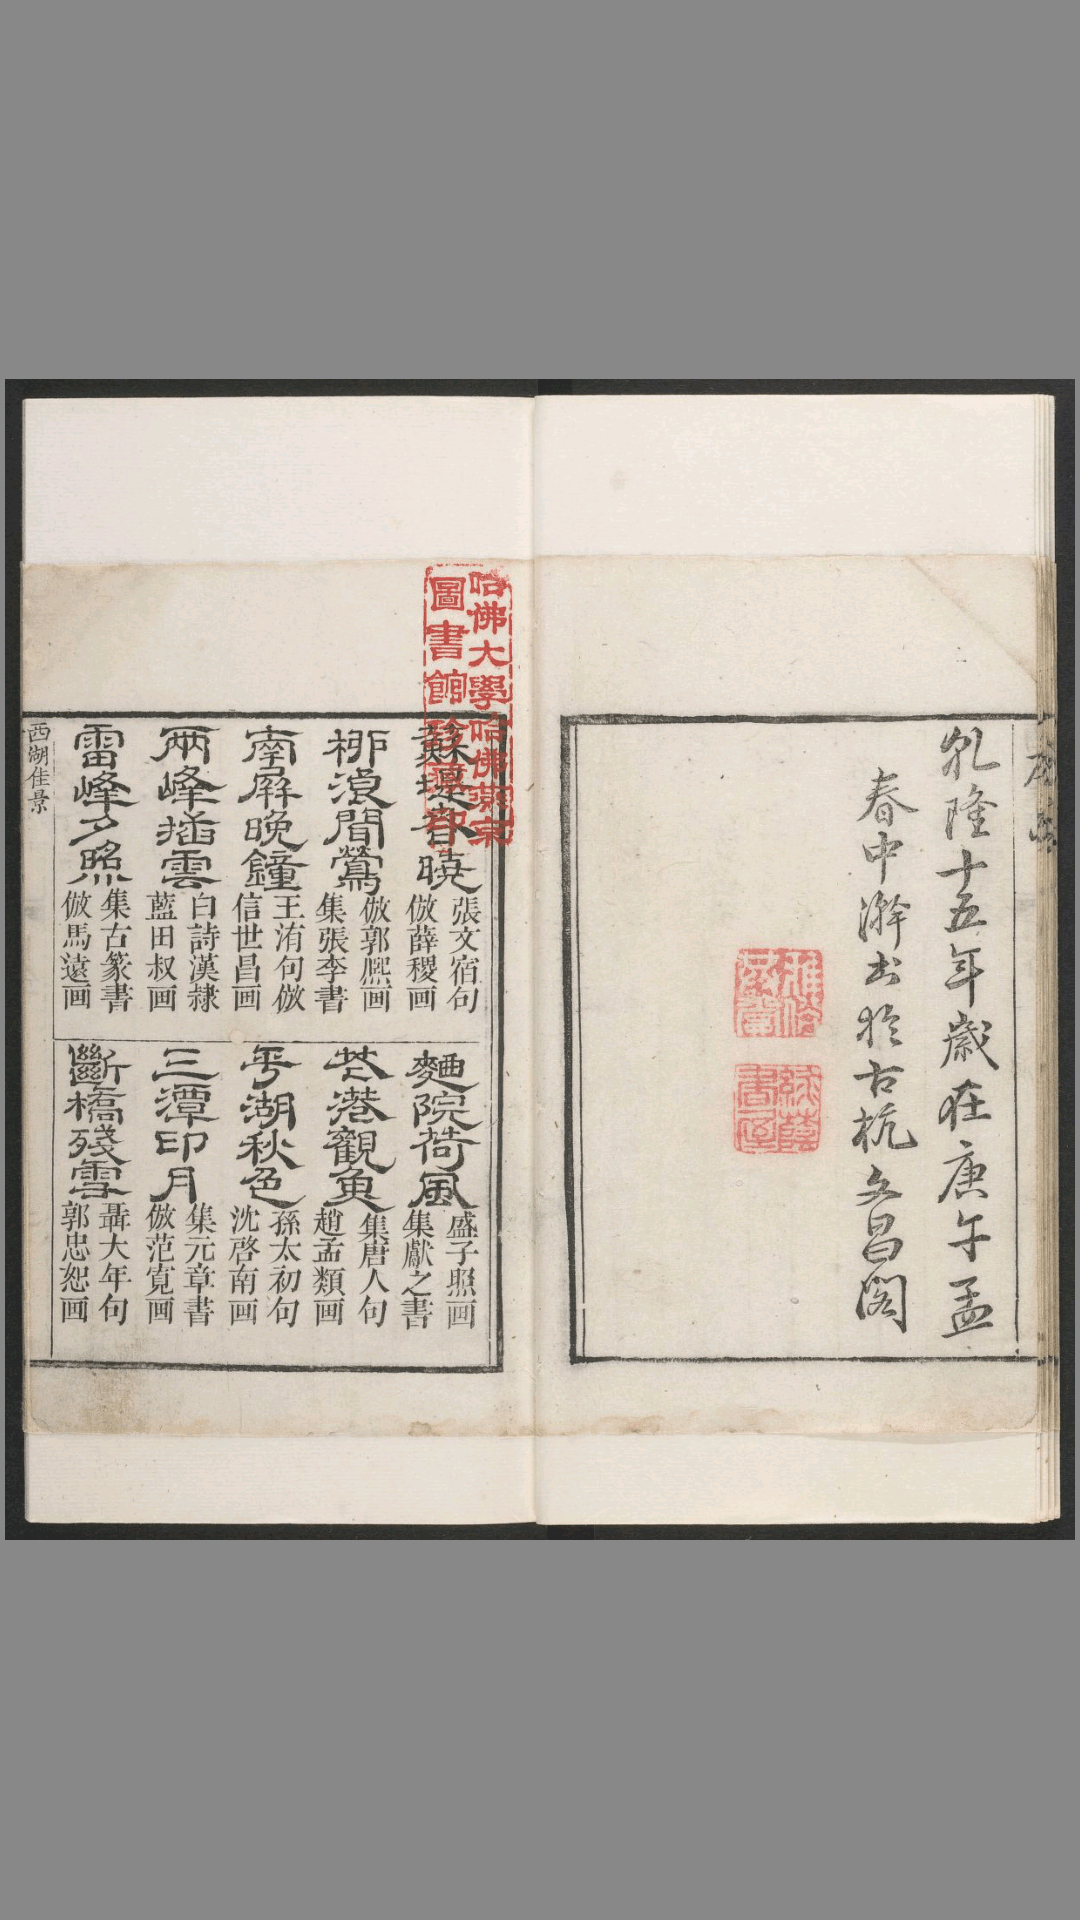 乹隆十五年歲在庚午孟
春中澣書於古杭文昌閣
哈佛大學哈佛燕京
圖書館珍藏印
蘇堤春曉
張文宿句
倣薛稷画
桺浪聞鶯
倣郭熈画
集張李書
南屏晚鐘
王洧句倣
信世昌画
兩峰插雲
白詩漢隸
藍田叔画
雷峰夕照
集古篆書
倣馬遠画
麯院荷風
盛子照画
集獻之書
花港觀魚
集唐人句
趙孟頫画
平湖秋色
孫太初句
沈啓南画
三潭印月
集元章書
倣范寛画
斷橋殘雪
聶大年句
郭忠恕画
西湖佳景